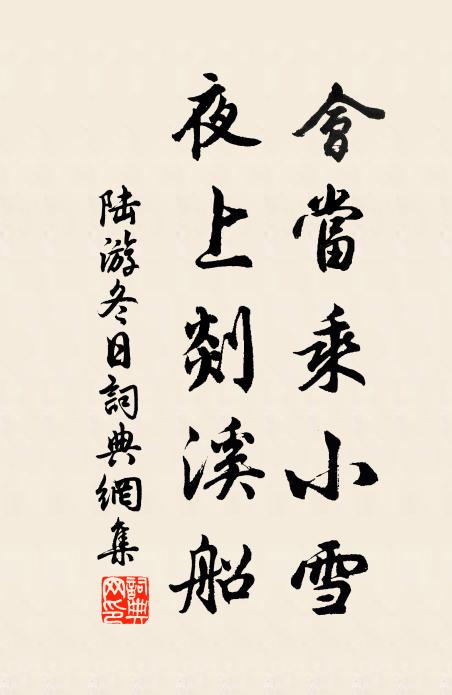 會當乘小雪
夜上剡溪船
陆游冬日詞典網集
詞典网印